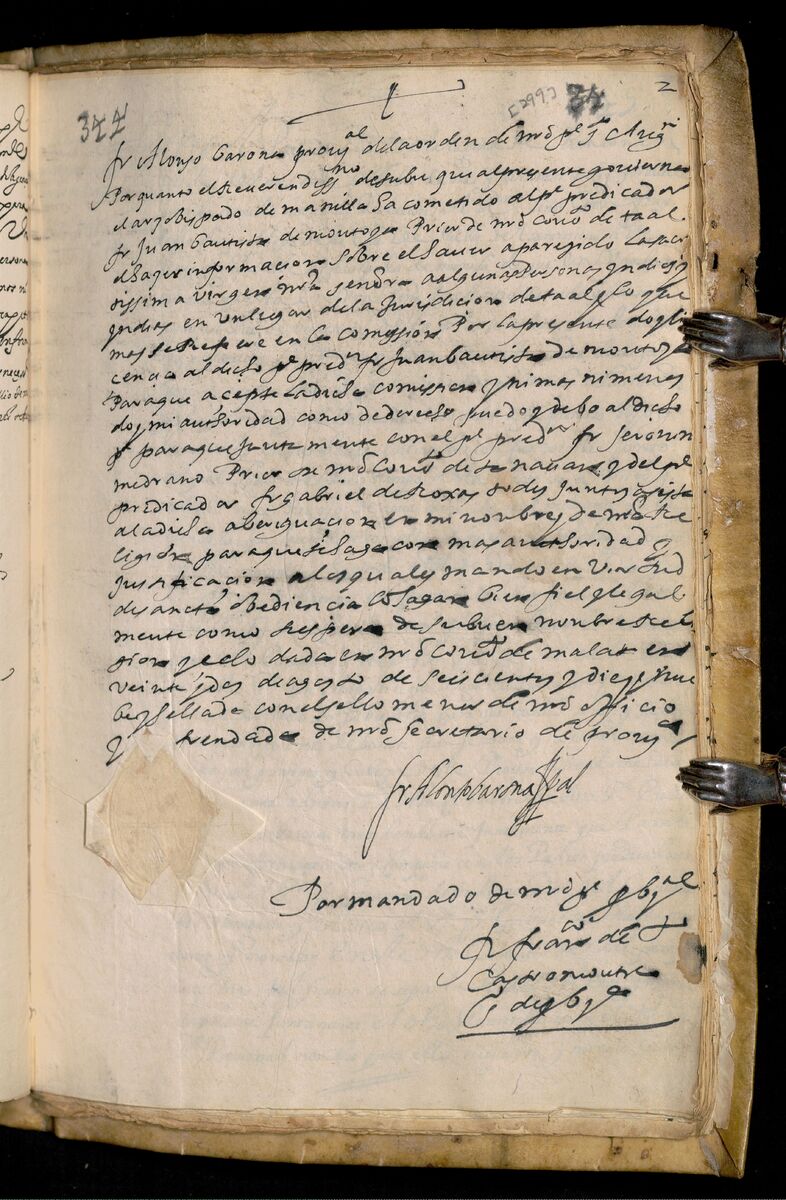 344 [299] 34 2
fr Alonso Barona provi^al de la orden de nrō pe s. Aug^n
Por quanto el Reverendiss^mo de subu que al presente govierna
el arzobispado de manilla ha cometido al pe. predicador
fr Juan bautista de montoya Prior de nrō convto de taal.
el hazer informacion sobre el haver aparezido la sacra
tissima virgen nrā señora a algunas Personas yndios y
yndias en un lugar de la Jurisdicion de taal y lo que
mas se Refiere en la comission Por la presente doy li
cencia al dicho pe pred^or fr Juan bautista de montoya
Para que acepte la dicha comission y
doy mi authoridad como de derecho puedo y debo al dicho
pe para que junta mente con el pe pred^or fr Jeronimo
medrano Prior de nrō convto de y del pe
predicador fr gabriel de Roxas todos juntos
a la dicha aberiguacion en mi nonbre y de nrā Re
ligion para que se haga con mas authoridad y
Justificacion a los quales mando en virtud
de sancta obediencia lo hagan bien fiel y legal
mente como se espera de su buen nonbre Reli
gion y celo dada en nrō convto de malat en
veinte y dos de agosto de seiscientos y diez y nue
be y sellada con el sello menor de nrō officio
y Refrendada de nrō secretario de prov^a
fr Alonso Barona Pal
Por mandado de nrō pe pbial
fr fran^co de
Castromonte